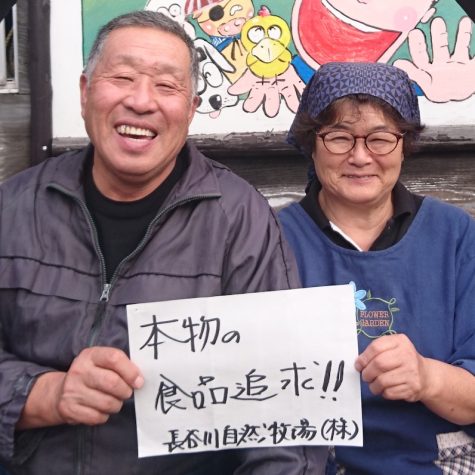 本物の
食品追求!!
長谷川自然牧場(株)
FLOWER
GARDEN